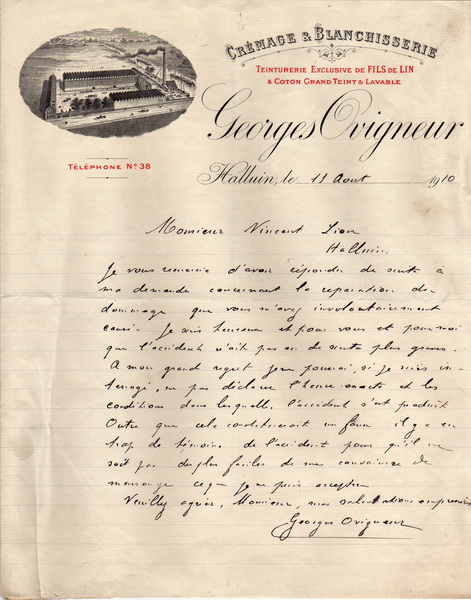 CRÉMAGE & BLANCHISSERIE
TEINTURERIE EXCLUSIVE DE FILS DE LIN
& COTON GRAND TEINT & LAVABLE
Georges Ovigneur
TÉLÉPHONE Nº 38
Halluin, le 11 Aout 1910
Monsieur Vincent Lion
Halluin
Je vous remercie d'avoir répondu de suite à
ma demande concernant la réparation du
dommage que vous m'avez involontairement
causé. Je suis heureux et pour vous et pour moi
que l'accident n'ait pas eu de suite plus grave.
A mon grand regret je ne pourrai, si je suis in-
terrogé, ne pas déclarer l'heure exacte et les
conditions dans lesquelles l'accident s'est produit
Outre que cela constituerait un faux il y a eu
trop de témoins de l'accident pour qu'il ne
soit pas des plus faciles de me convaincre de
mensonge ce que je ne puis accepter
Veuillez agréer, Monsieur, mes salutations empressées
Georges Ovigneur